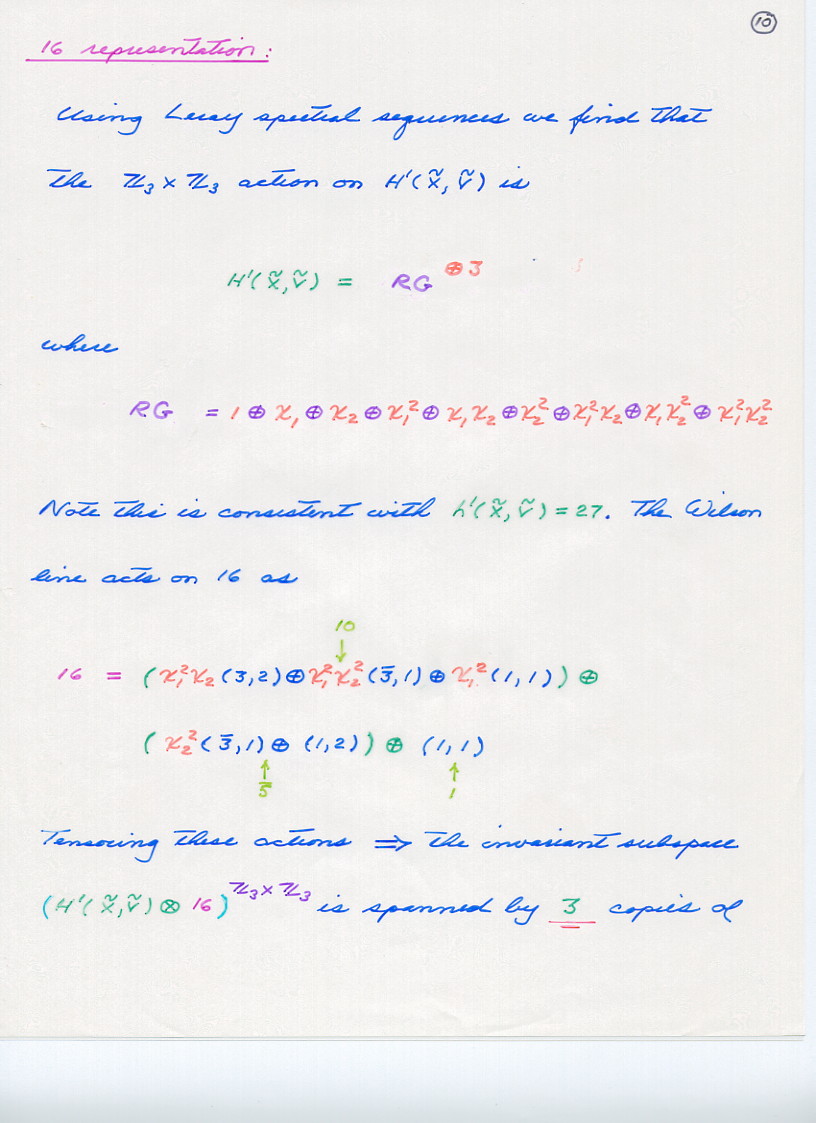 10
16 representation:
Using Leray spectral sequences we find that
the ℤ₃ × ℤ₃ action on H¹(X̃, Ṽ) is
H¹(X̃, Ṽ) = RG^⊕3
where
RG = 1 ⊕ χ₁ ⊕ χ₂ ⊕ χ₁² ⊕ χ₁χ₂ ⊕ χ₂² ⊕ χ₁²χ₂ ⊕ χ₁χ₂² ⊕ χ₁²χ₂²
Note this is consistent with h¹(X̃, Ṽ) = 27. The Wilson
line acts on 16 as
10
↓
16 = (χ₁²χ₂(3,2) ⊕ χ₁²χ₂²(3̄,1) ⊕ χ₁²(1,1)) ⊕
(χ₂²(3̄,1) ⊕ (1,2)) ⊕ (1,1)
↑ ↑
5̄ 1
Tensoring these actions ⟹ the invariant subspace
(H¹(X̃, Ṽ) ⊗ 16)^ℤ₃×ℤ₃ is spanned by 3 copies of